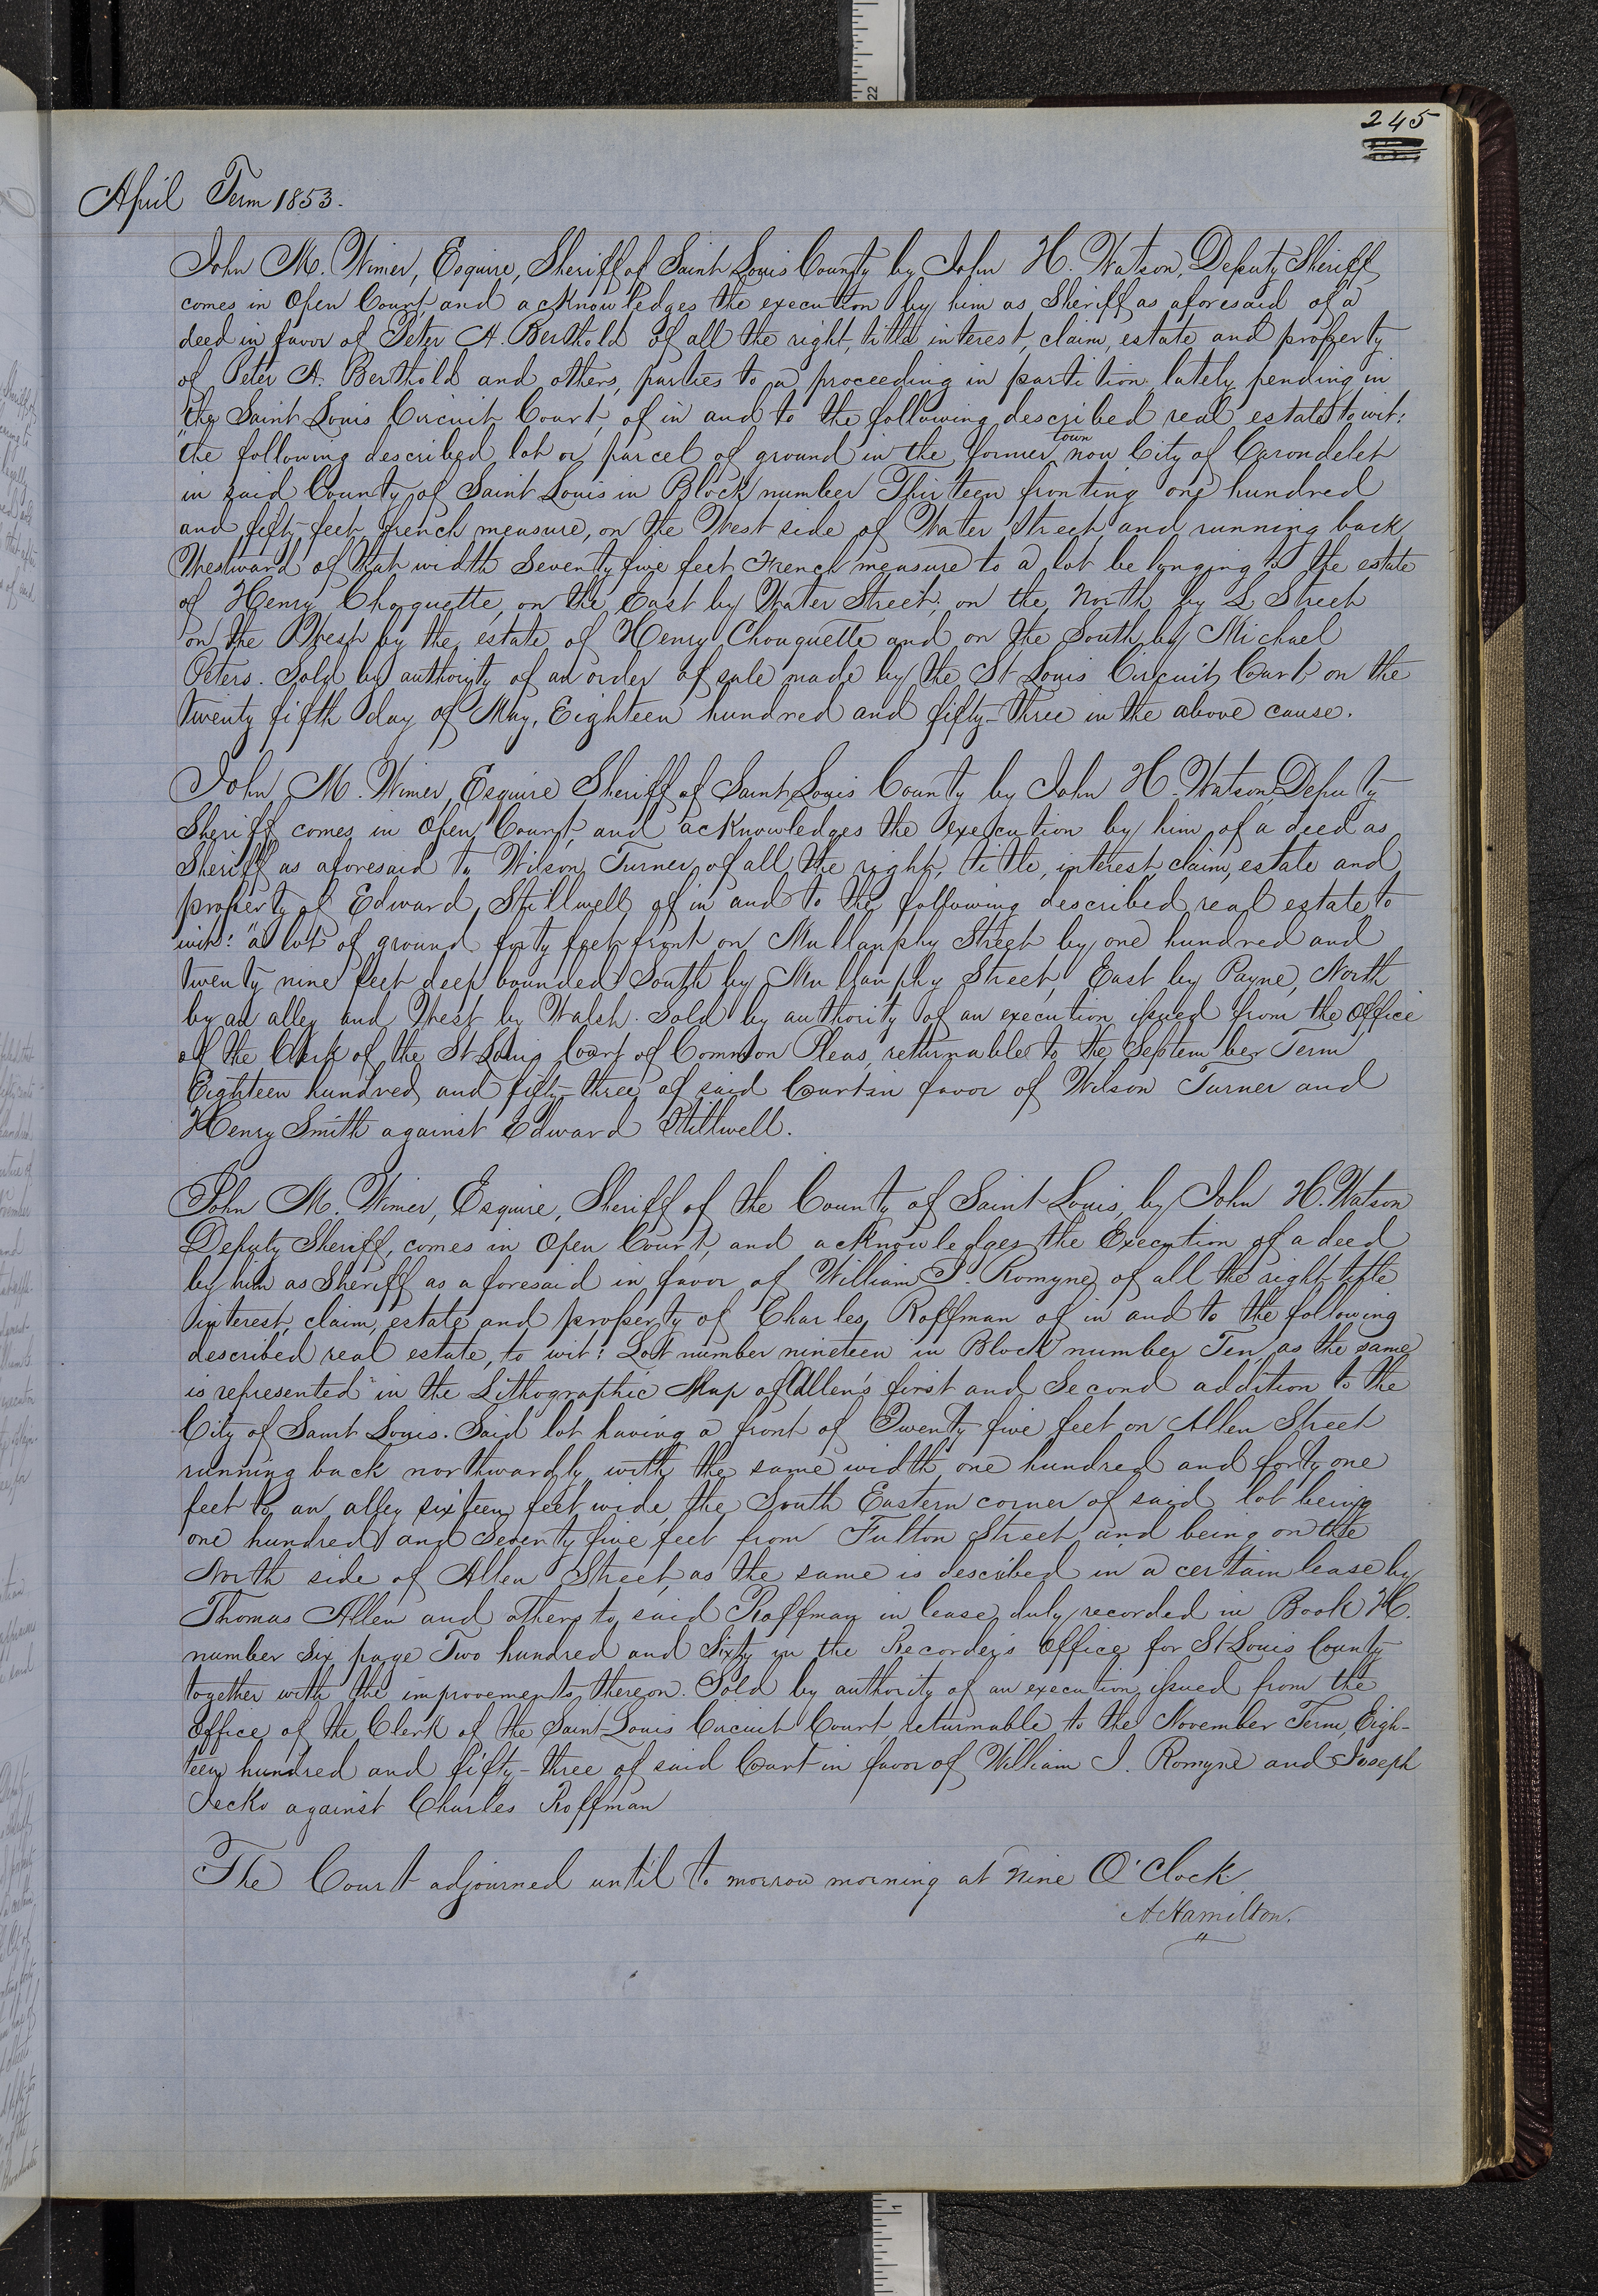 245
April Term 1853.
John M. Wimer, Esquire, Sheriff of Saint Louis County by John H. Watson, Deputy Sheriff
comes in Open Court, and acknowledges the execution by him as Sheriff as aforesaid of a
deed in favor of Peter A. Berthold of all the right, title interest, claim, estate and property
of Peter A. Berthold and others, parties to a proceeding in partition lately pending in
the Saint Louis Circuit Court, of in and to the following described real estate to wit:
"the following described lot or parcel of ground in the former town now City of Carondelet
in said County of Saint Louis in Block number Thirteen fronting one hundred
and fifty feet french measure, on the West side of Water Street and running back
Westward of that width Seventy five feet French measure to a lot belonging to the estate
of Henry Chouquette, on the East by Water Street, on the North by L Street
on the West by the estate of Henry Chouquette and on the South by Michael
Peters. Sold by authority of an order of sale made by the St Louis Circuit Court on the
twenty fifth day of May, Eighteen hundred and fifty-three in the above cause.
John M. Wimer, Esquire Sheriff of Saint Louis County by John H. Watson, Deputy
Sheriff comes in Open Court, and acknowledges the execution by him of a deed as
Sheriff as aforesaid to Wilson Turner of all the right, title, interest, claim, estate and
property of Edward Stillwell of in and to the following described real estate to
wit: "a lot of ground forty feet front on Mullanphy Street by one hundred and
twenty nine feet deep bounded South by Mullanphy Street, East by Payne, North
by an alley and West by Walsh. Sold by authority of an execution issued from the Office
of the Clerk of the St Louis Court of Common Pleas, returnable to the September Term
Eighteen hundred and fifty-three of said Court in favor of Wilson Turner and
Henry Smith against Edward Stillwell.
John M. Wimer, Esquire, Sheriff of the County of Saint Louis, by John H. Watson
Deputy Sheriff, comes in Open Court, and acknowledges the Execution of a deed
by him as Sheriff as aforesaid in favor of William J. Romyne of all the right title
interest, claim, estate and property of Charles Roffman of in and to the following
described real estate, to wit: Lot number nineteen in Block number Ten, as the same
is represented in the Lithographic Map of Allen's first and Second addition to the
City of Saint Louis. Said lot having a front of Twenty five feet on Allen Street
running back northwardly with the same width one hundred and forty one
feet to an alley sixteen feet wide, the South Eastern corner of said lot being
one hundred and Seventy five feet from Fulton Street and being on the
North side of Allen Street, as the same is described in a certain lease by
Thomas Allen and others to said Roffman in lease duly recorded in Book H.
number six page Two hundred and Sixty in the Recorder's Office for St Louis County
together with the improvements thereon. Sold by authority of an execution issued from the
Office of the Clerk of the Saint Louis Circuit Court, returnable to the November Term, Eigh-
teen hundred and fifty-three of said Court in favor of William J. Romyne and Joseph
Jecko against Charles Roffman
The Court adjourned until to morrow morning at nine O'Clock
A. Hamilton.